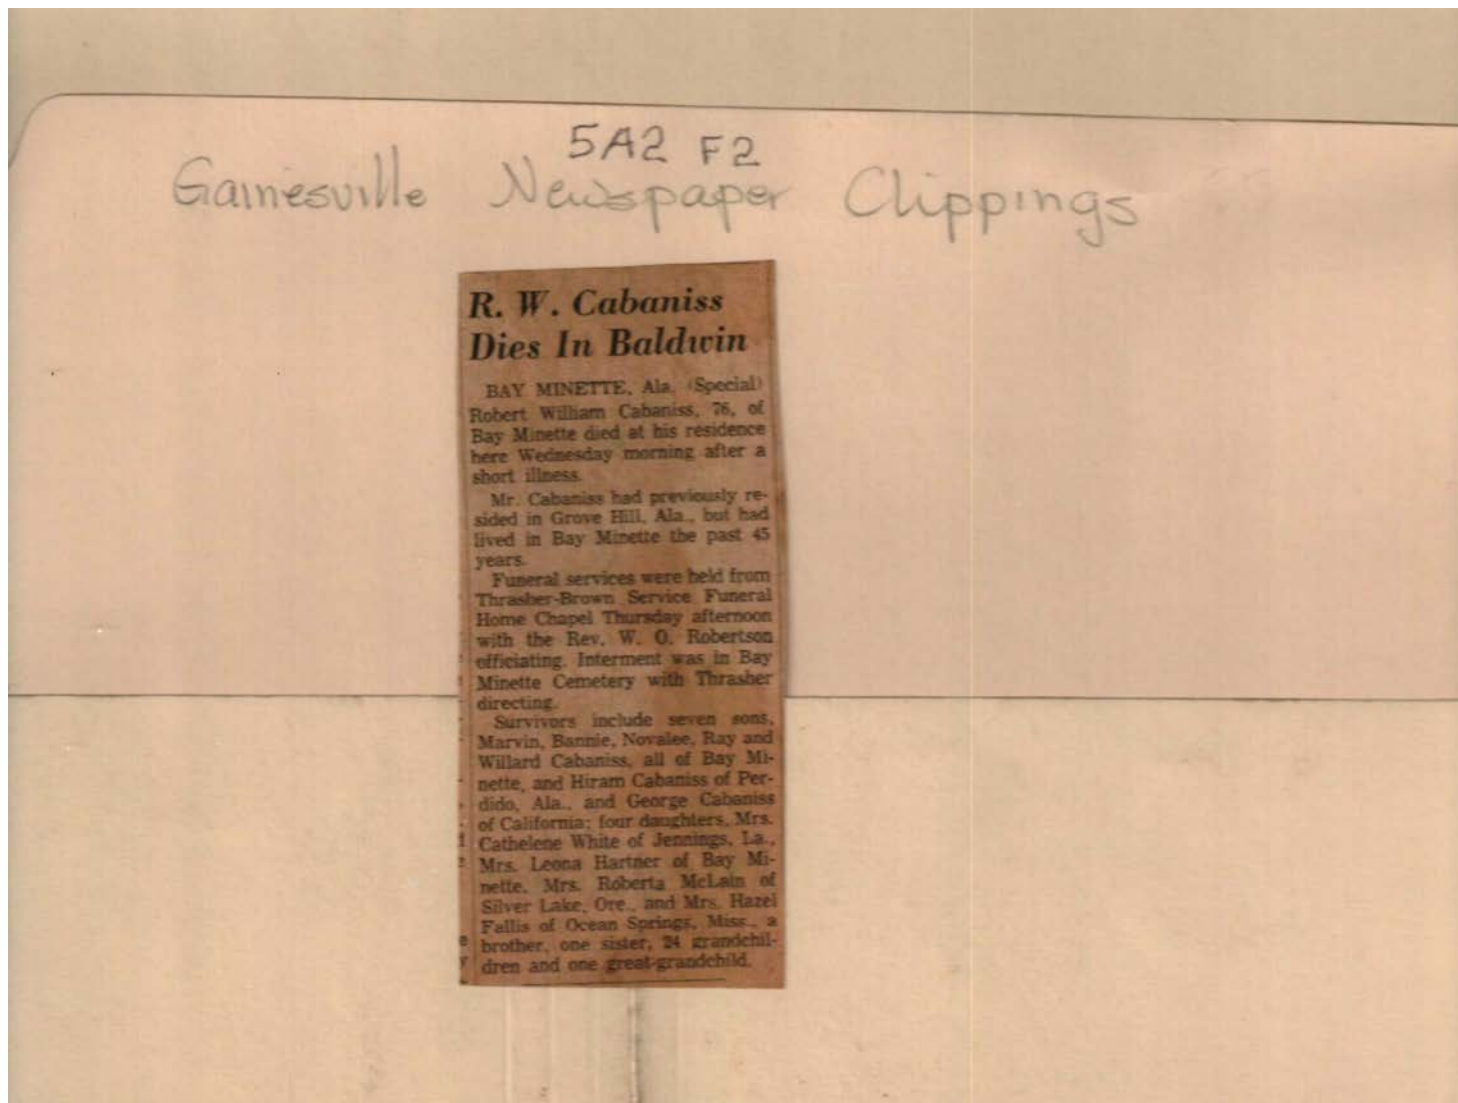 5A2 F2
Gainesville Newspaper Clippings
R. W. Cabaniss
Dies In Baldwin
BAY MINETTE, Ala. (Special)
Robert William Cabaniss, 76, of
Bay Minette died at his residence
here Wednesday morning after a
short illness.
Mr. Cabaniss had previously re-
sided in Grove Hill, Ala., but had
lived in Bay Minette the past 45
years.
Funeral services were held from
Thrasher-Brown Service Funeral
Home Chapel Thursday afternoon
with the Rev. W. O. Robertson
officiating. Interment was in Bay
Minette Cemetery with Thrasher
directing.
Survivors include seven sons,
Marvin, Bannie, Novalee, Ray and
Willard Cabaniss, all of Bay Mi-
nette, and Hiram Cabaniss of Per-
dido, Ala., and George Cabaniss
of California; four daughters, Mrs.
Cathelene White of Jennings, La.,
Mrs. Leona Hartner of Bay Mi-
nette, Mrs. Roberta McLain of
Silver Lake, Ore., and Mrs. Hazel
Fallis of Ocean Springs, Miss., a
brother, one sister, 24 grandchil-
dren and one great-grandchild.